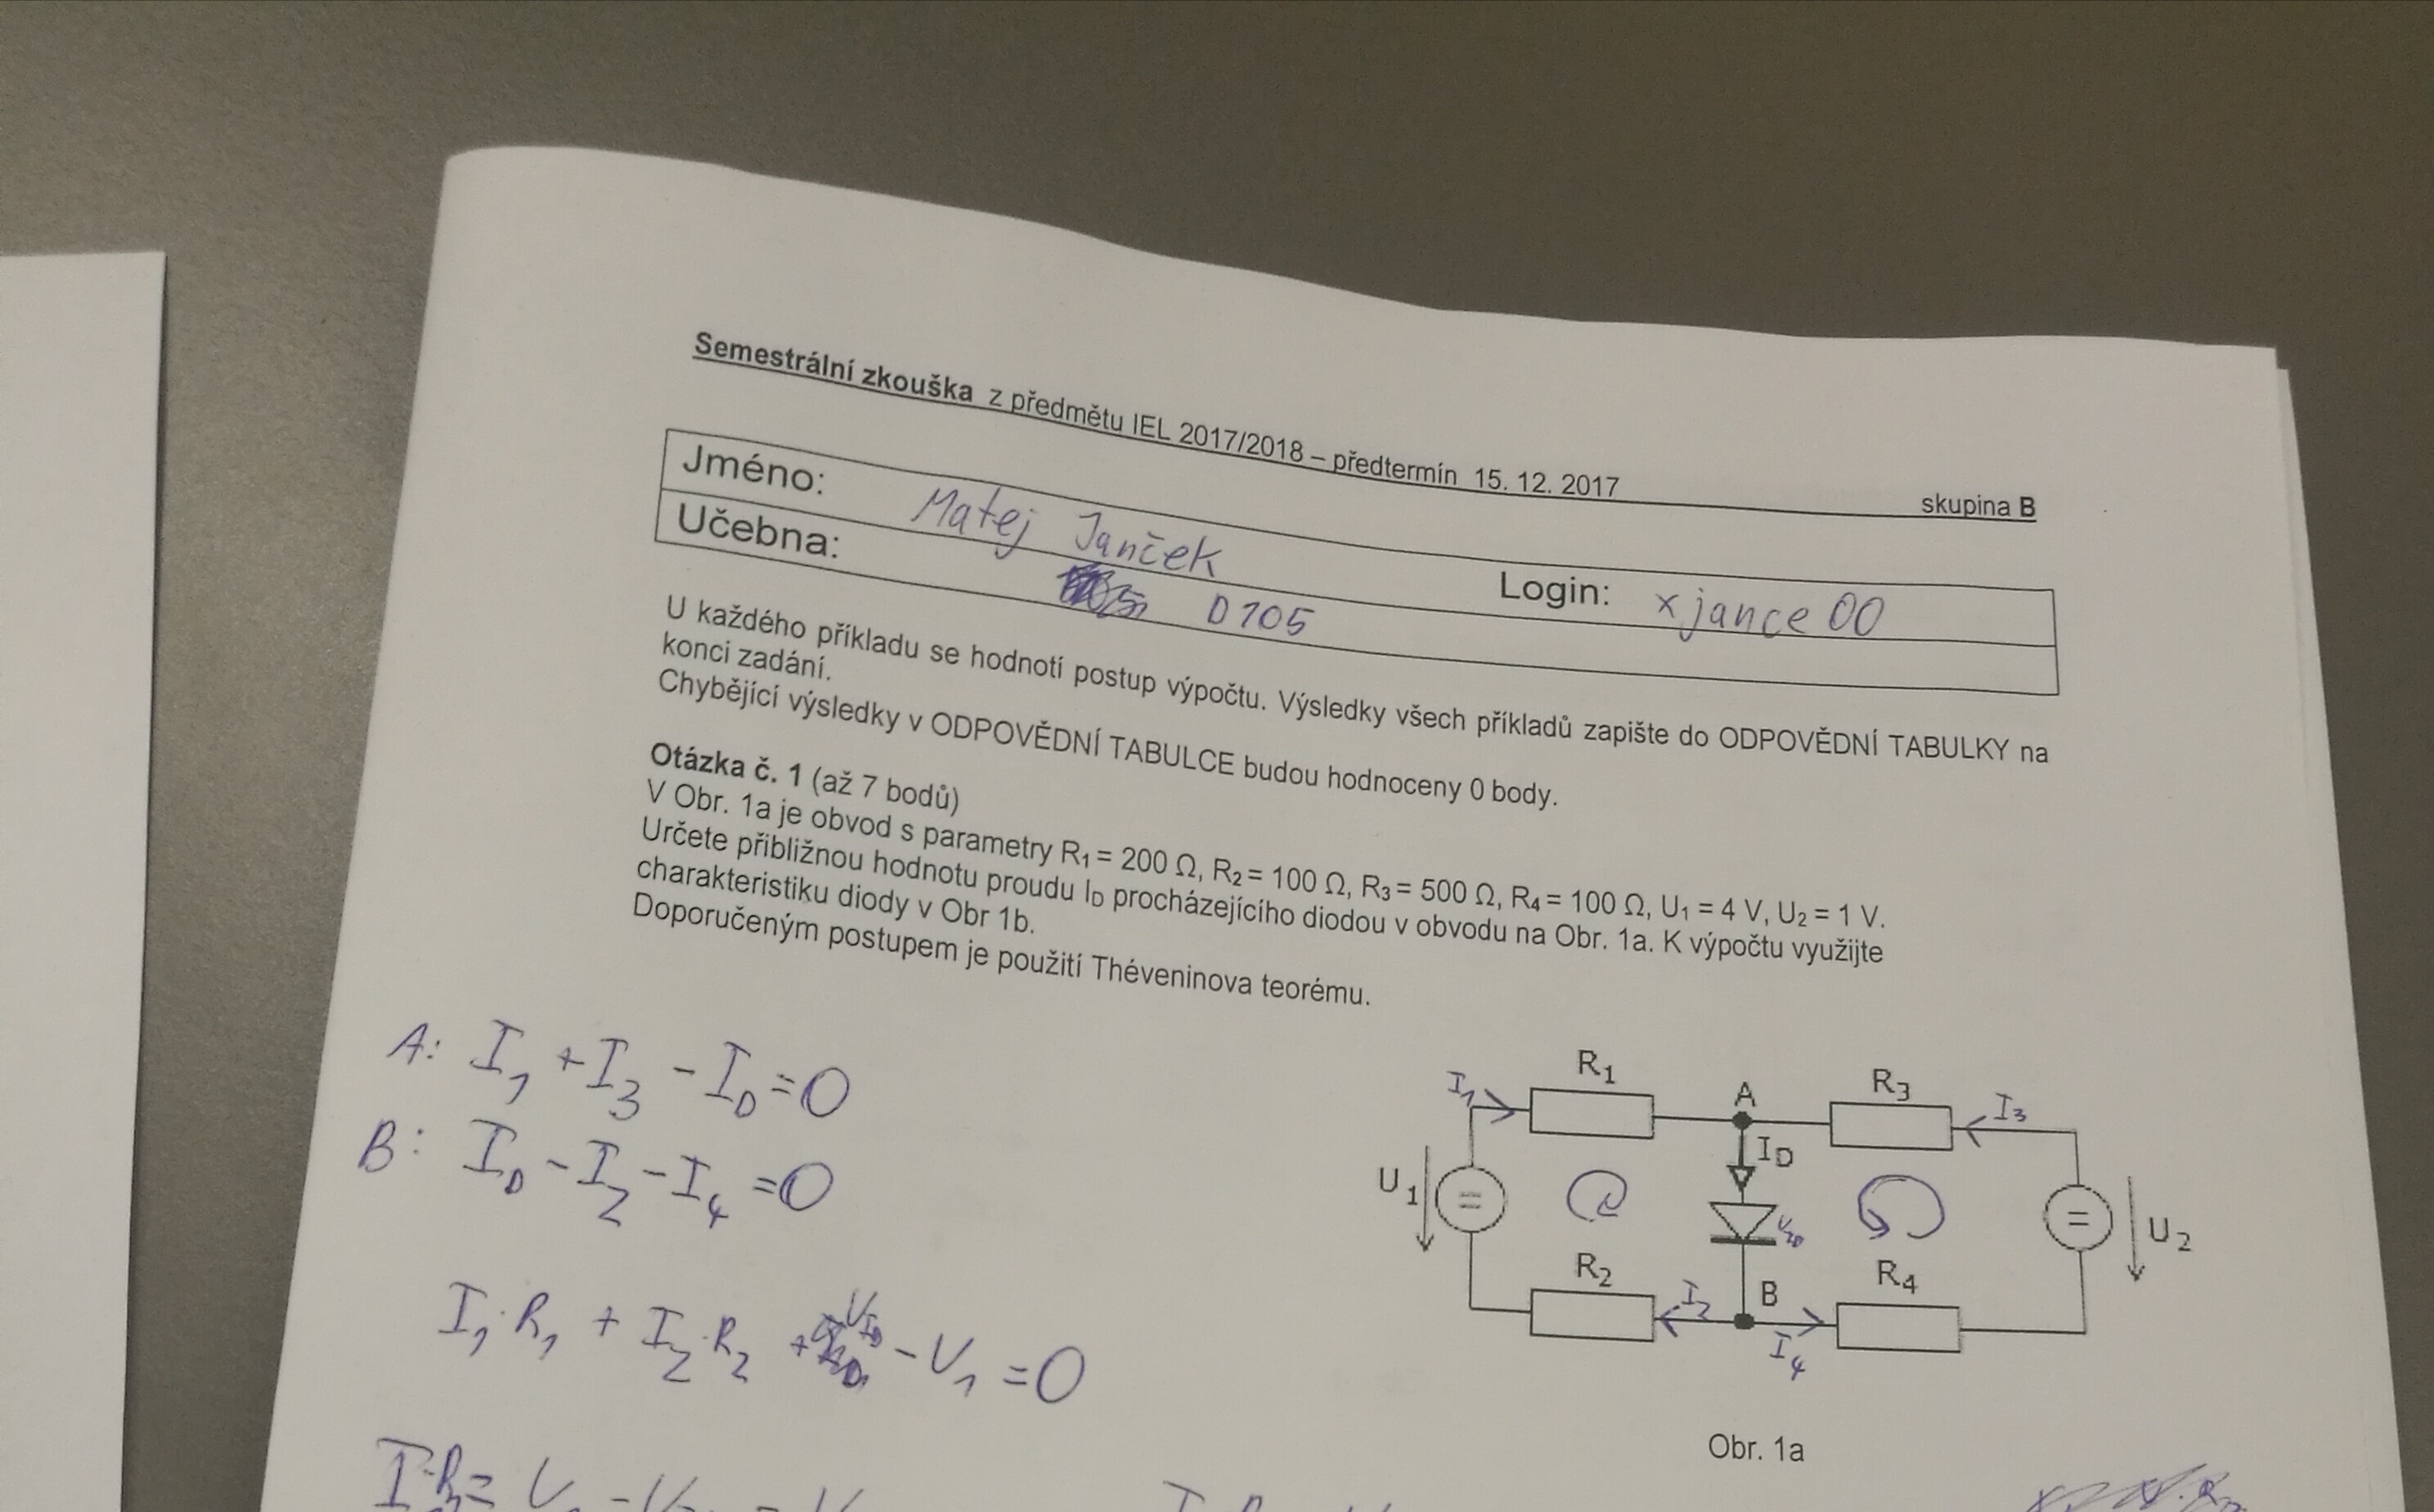 Semestrální zkouška z předmětu IEL 2017/2018 – předtermín 15. 12. 2017 skupina B
Jméno: Matej Janček Login: xjance00
Učebna: D105
U každého příkladu se hodnotí postup výpočtu. Výsledky všech příkladů zapište do ODPOVĚDNÍ TABULKY na
konci zadání.
Chybějící výsledky v ODPOVĚDNÍ TABULCE budou hodnoceny 0 body.
Otázka č. 1 (až 7 bodů)
V Obr. 1a je obvod s parametry R₁ = 200 Ω, R₂ = 100 Ω, R₃ = 500 Ω, R₄ = 100 Ω, U₁ = 4 V, U₂ = 1 V.
Určete přibližnou hodnotu proudu I_D procházejícího diodou v obvodu na Obr. 1a. K výpočtu využijte
charakteristiku diody v Obr 1b.
Doporučeným postupem je použití Théveninova teorému.
A: I₁ + I₃ - I_D = 0
B: I_D - I₂ - I₄ = 0
I₁·R₁ + I₂·R₂ + U_ID - U₁ = 0
I₁ R₁ A R₃ I₃
I_D
U₁ = = U₂
R₂ I₂ B I₄ R₄
Obr. 1a